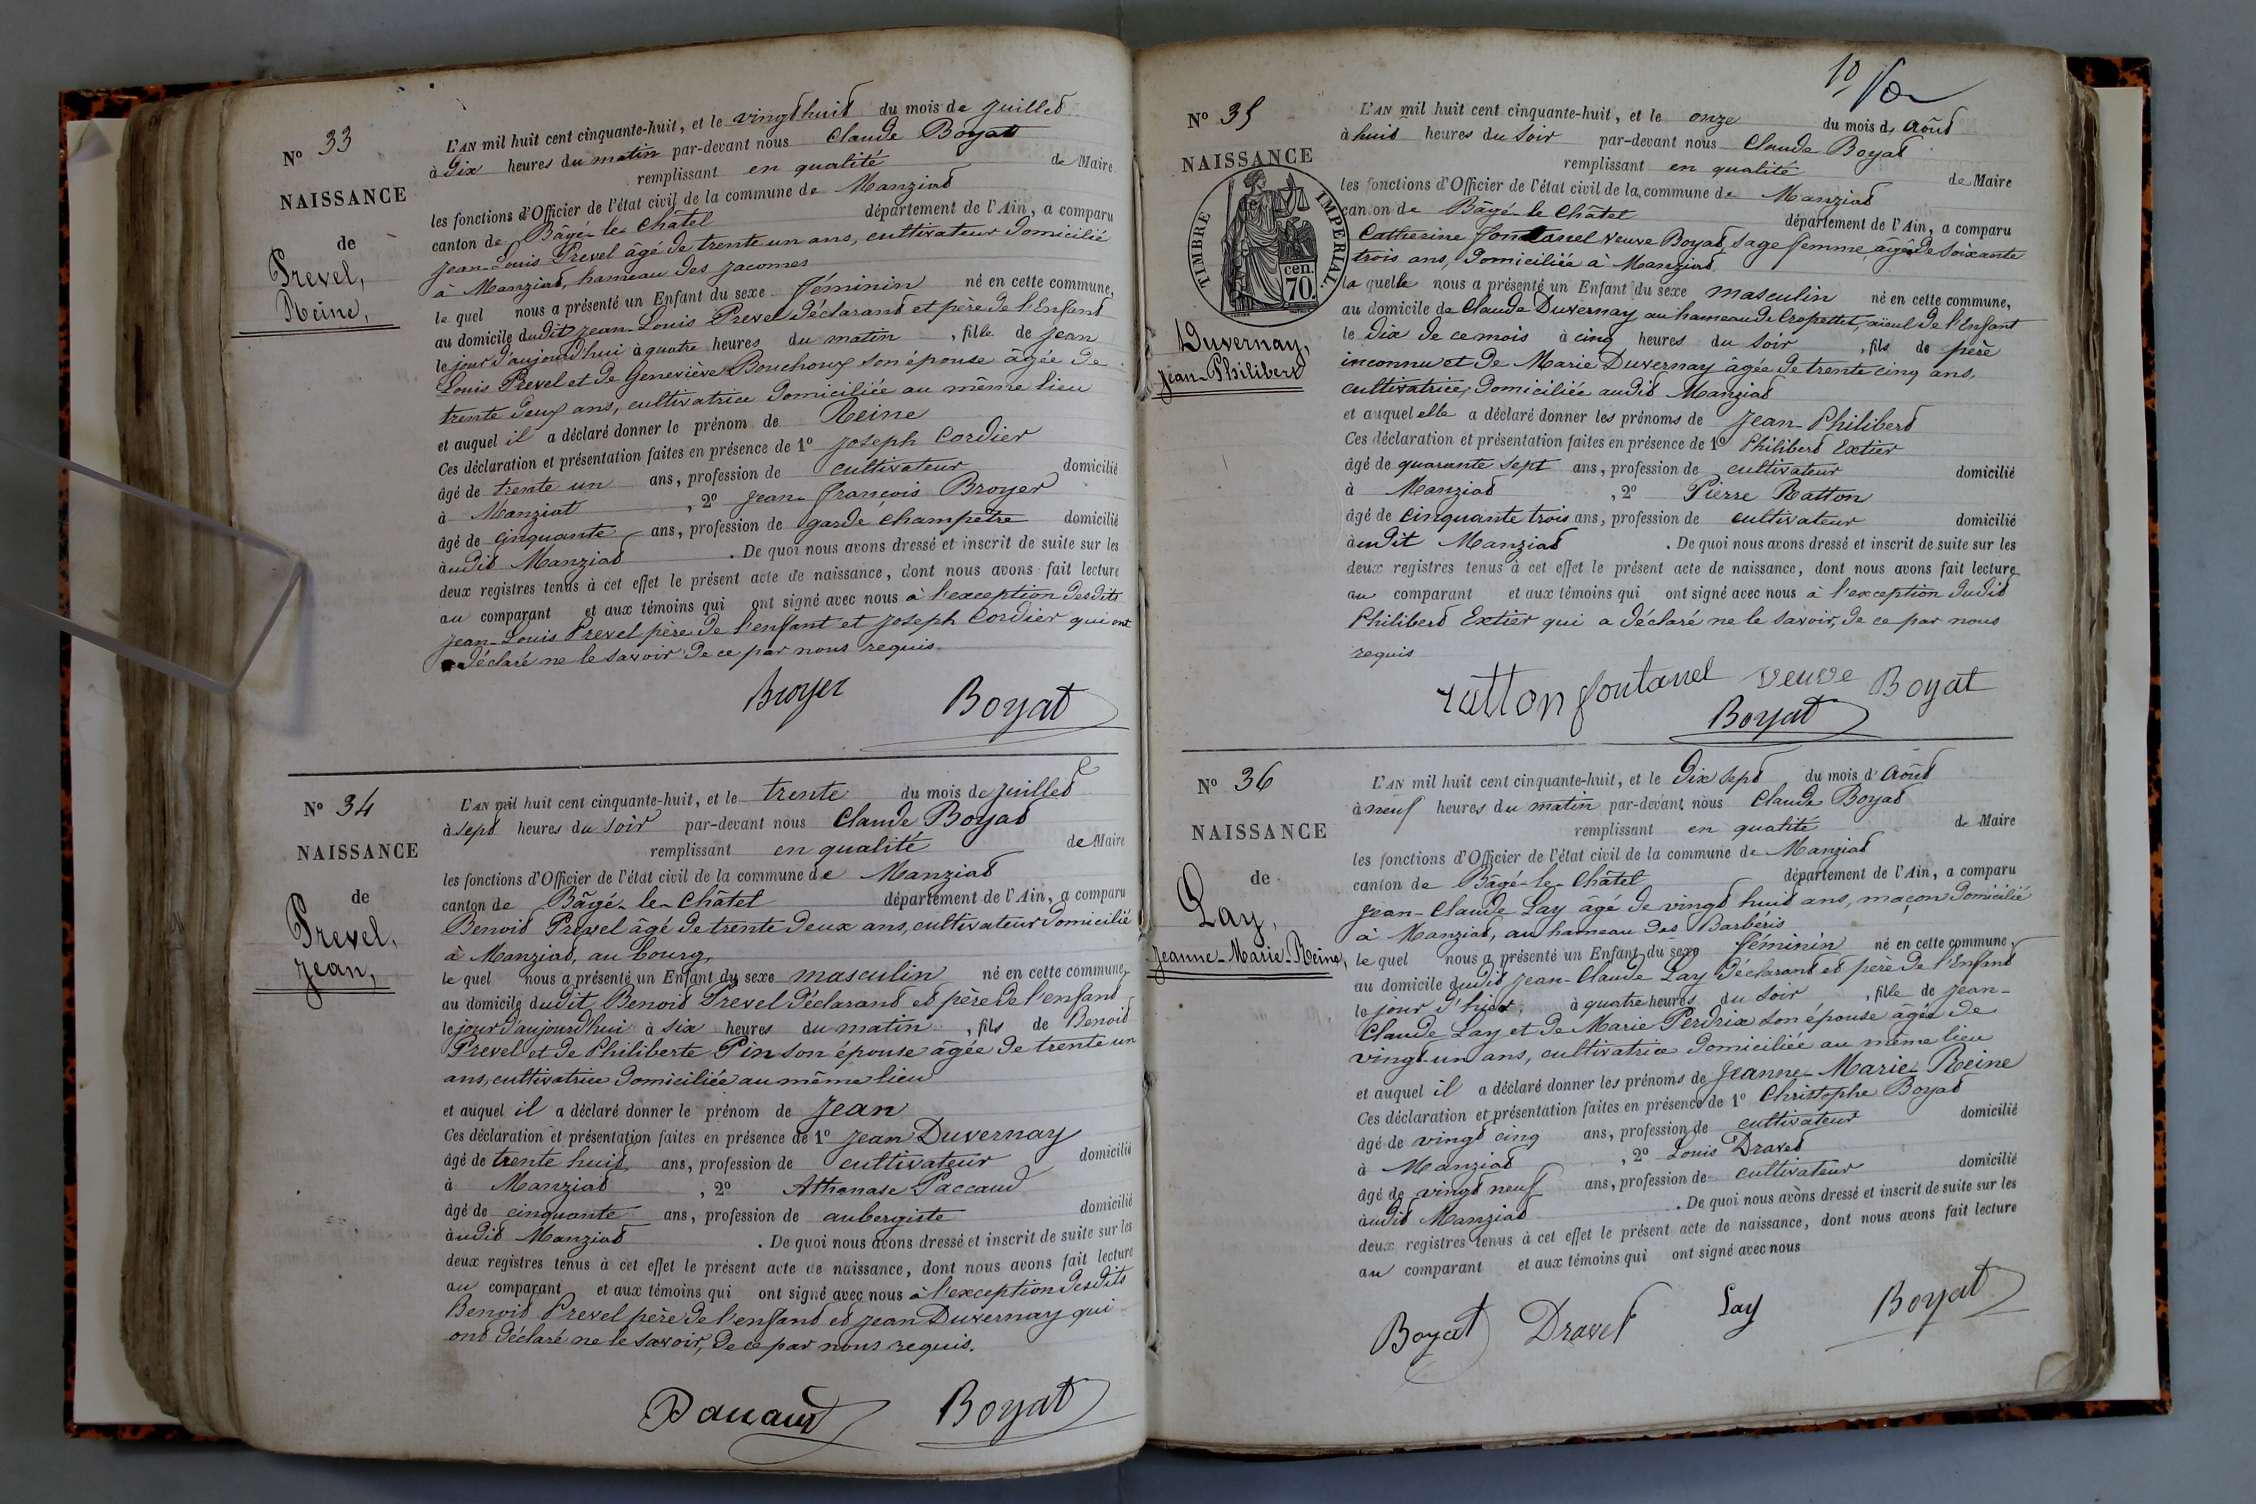 N° 33
NAISSANCE
de
Prevel,
Reine,
L'AN mil huit cent cinquante-huit, et le vingt huit du mois de Juillet
à dix heures du matin par-devant nous Claude Boyat
remplissant en qualité de Maire
les fonctions d'Officier de l'état civil de la commune de Manziat
canton de Bâgé-le-Châtel département de l'Ain, a comparu
Jean-Louis Prevel âgé de trente un ans, cultivateur domicilié
à Manziat, hameau des Jacomes
le quel nous a présenté un Enfant du sexe féminin né en cette commune,
au domicile dudit Jean-Louis Prevel déclarant et père de l'Enfant
le jour d'aujourd'hui à quatre heures du matin, fille de Jean
Louis Prevel et de Geneviève Bouchoux son épouse âgée de
trente deux ans, cultivatrice domiciliée au même lieu
et auquel il a déclaré donner le prénom de Reine
Ces déclaration et présentation faites en présence de 1° Joseph Cordier
âgé de trente un ans, profession de cultivateur domicilié
à Manziat, 2° Jean-François Broyer
âgé de cinquante ans, profession de garde champêtre domicilié
audit Manziat. De quoi nous avons dressé et inscrit de suite sur les
deux registres tenus à cet effet le présent acte de naissance, dont nous avons fait lecture
au comparant et aux témoins qui ont signé avec nous à l'exception desdits
Jean-Louis Prevel père de l'enfant et Joseph Cordier qui ont
déclaré ne le savoir de ce par nous requis.
Broyer Boyat
N° 34
NAISSANCE
de
Prevel,
Jean,
L'AN mil huit cent cinquante-huit, et le trente du mois de Juillet
à sept heures du soir par-devant nous Claude Boyat
remplissant en qualité de Maire
les fonctions d'Officier de l'état civil de la commune de Manziat
canton de Bâgé-le-Châtel département de l'Ain, a comparu
Benoit Prevel âgé de trente deux ans, cultivateur domicilié
à Manziat, au bourg,
le quel nous a présenté un Enfant du sexe masculin né en cette commune,
au domicile dudit Benoit Prevel déclarant et père de l'enfant
le jour d'aujourd'hui à six heures du matin, fils de Benoit
Prevel et de Philiberte Pin son épouse âgée de trente un
ans, cultivatrice domiciliée au même lieu
et auquel il a déclaré donner le prénom de Jean
Ces déclaration et présentation faites en présence de 1° Jean Duvernay
âgé de trente huit ans, profession de cultivateur domicilié
à Manziat, 2° Athanase Paccaud
âgé de cinquante ans, profession de aubergiste domicilié
audit Manziat. De quoi nous avons dressé et inscrit de suite sur les
deux registres tenus à cet effet le présent acte de naissance, dont nous avons fait lecture
au comparant et aux témoins qui ont signé avec nous à l'exception desdits
Benoit Prevel père de l'enfant et Jean Duvernay qui
ont déclaré ne le savoir, de ce par nous requis.
Paccaud Boyat
10
N° 35
NAISSANCE
TIMBRE IMPERIAL.
70 cen.
Duvernay,
Jean-Philibert
L'AN mil huit cent cinquante-huit, et le onze du mois d'Août
à huit heures du soir par-devant nous Claude Boyat
remplissant en qualité de Maire
les fonctions d'Officier de l'état civil de la commune de Manziat
canton de Bâgé-le-Châtel département de l'Ain, a comparu
Catherine Fontanel veuve Boyat, sage femme, âgée de soixante
trois ans, domiciliée à Manziat,
la quelle nous a présenté un Enfant du sexe masculin né en cette commune,
au domicile de Claude Duvernay au hameau de Cropettet, aïeul de l'Enfant
le dix de ce mois à cinq heures du soir, fils de père
inconnu et de Marie Duvernay âgée de trente cinq ans,
cultivatrice, domiciliée audit Manziat
et auquel elle a déclaré donner les prénoms de Jean-Philibert
Ces déclaration et présentation faites en présence de 1° Philibert Extier
âgé de quarante sept ans, profession de cultivateur domicilié
à Manziat, 2° Pierre Ratton
âgé de cinquante trois ans, profession de cultivateur domicilié
audit Manziat. De quoi nous avons dressé et inscrit de suite sur les
deux registres tenus à cet effet le présent acte de naissance, dont nous avons fait lecture
au comparant et aux témoins qui ont signé avec nous à l'exception dudit
Philibert Extier qui a déclaré ne le savoir, de ce par nous
requis
ratton fontanel veuve Boyat
Boyat
N° 36
NAISSANCE
de
Lay,
Jeanne-Marie-Reine,
L'AN mil huit cent cinquante-huit, et le dix sept du mois d'Août
à neuf heures du matin par-devant nous Claude Boyat
remplissant en qualité de Maire
les fonctions d'Officier de l'état civil de la commune de Manziat
canton de Bâgé-le-Châtel département de l'Ain, a comparu
Jean-Claude Lay âgé de vingt huit ans, maçon domicilié
à Manziat, au hameau des Barbéris
le quel nous a présenté un Enfant du sexe féminin né en cette commune,
au domicile dudit Jean-Claude Lay déclarant et père de l'Enfant
le jour d'hier, à quatre heures du soir, fille de Jean-
Claude Lay et de Marie Perdrix son épouse âgée de
vingt-un ans, cultivatrice domiciliée au même lieu
et auquel il a déclaré donner les prénoms de Jeanne-Marie-Reine
Ces déclaration et présentation faites en présence de 1° Christophe Boyat
âgé de vingt cinq ans, profession de cultivateur domicilié
à Manziat, 2° Louis Dravet
âgé de vingt neuf ans, profession de cultivateur domicilié
audit Manziat. De quoi nous avons dressé et inscrit de suite sur les
deux registres tenus à cet effet le présent acte de naissance, dont nous avons fait lecture
au comparant et aux témoins qui ont signé avec nous
Boyat Dravet Lay Boyat